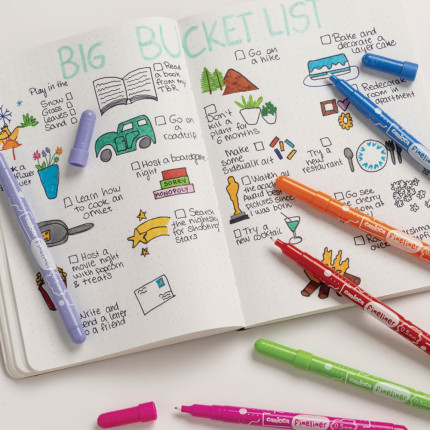 BIG BUCKET LIST
Play in the
Snow
Grass
Leaves
Sand
Read a
book
from my
TBR
Go on
a
roadtrip
Host a boardgame
night
SORRY
MONOPOLY
Learn how
to cook an
omlet
Search
the nightsky
for shooting
stars
Host a
movie night
with popcorn
& treats
Write and
send a letter
to a friend
Go on
a hike
Bake and
decorate a
layer cake
Redecorate
room in
apartment
Don't
kill a
plant for
6 months
Make
some
Sidewalk art
Try a
new
restaurant
Watch all
the academy
award best
pictures since
I was born
Go see
the cherry
Try a
new cocktail
over
fineliner
fineliner
fineliner
fineliner